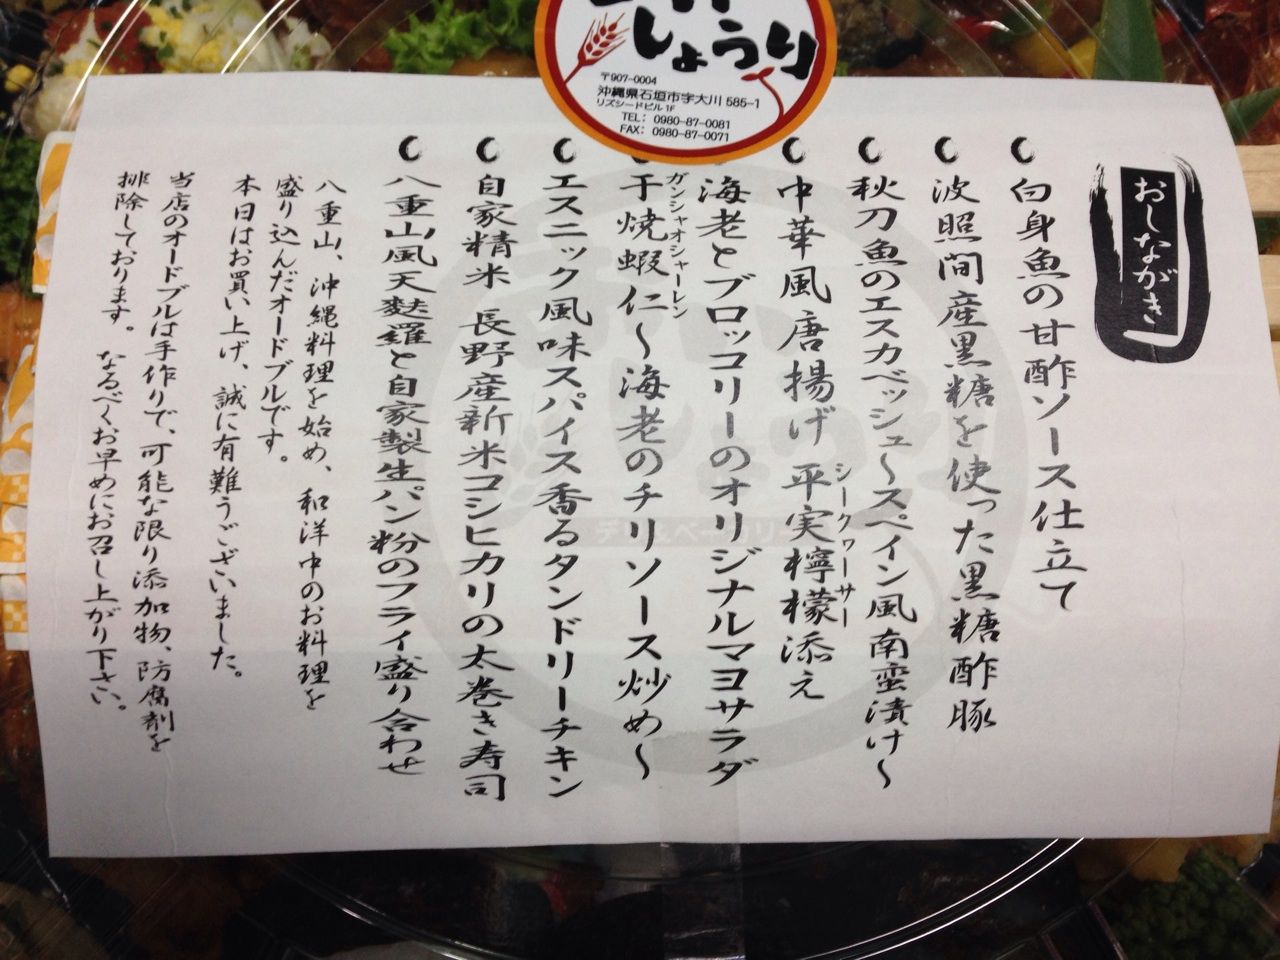 しょうり
〒907-0004
沖縄県石垣市字大川 585-1
リズシードビル 1F
TEL: 0980-87-0081
FAX: 0980-87-0071
おしながき
白身魚の甘酢ソース仕立て
波照間産黒糖を使った黒糖酢豚
秋刀魚のエスカベッシュ〜スペイン風南蛮漬け〜
中華風唐揚げ 平実檸檬添え
シークヮーサー
海老とブロッコリーのオリジナルマヨサラダ
ガンシャオシャーレン
干焼蝦仁〜海老のチリソース炒め〜
エスニック風味スパイス香るタンドリーチキン
自家精米 長野産新米コシヒカリの太巻き寿司
八重山風天麩羅と自家製生パン粉のフライ盛り合わせ
八重山、沖縄料理を始め、和洋中のお料理を
盛り込んだオードブルです。
本日はお買い上げ、誠に有難うございました。
当店のオードブルは手作りで、可能な限り添加物、防腐剤を
排除しております。なるべくお早めにお召し上がり下さい。
デリ&ベーカリー